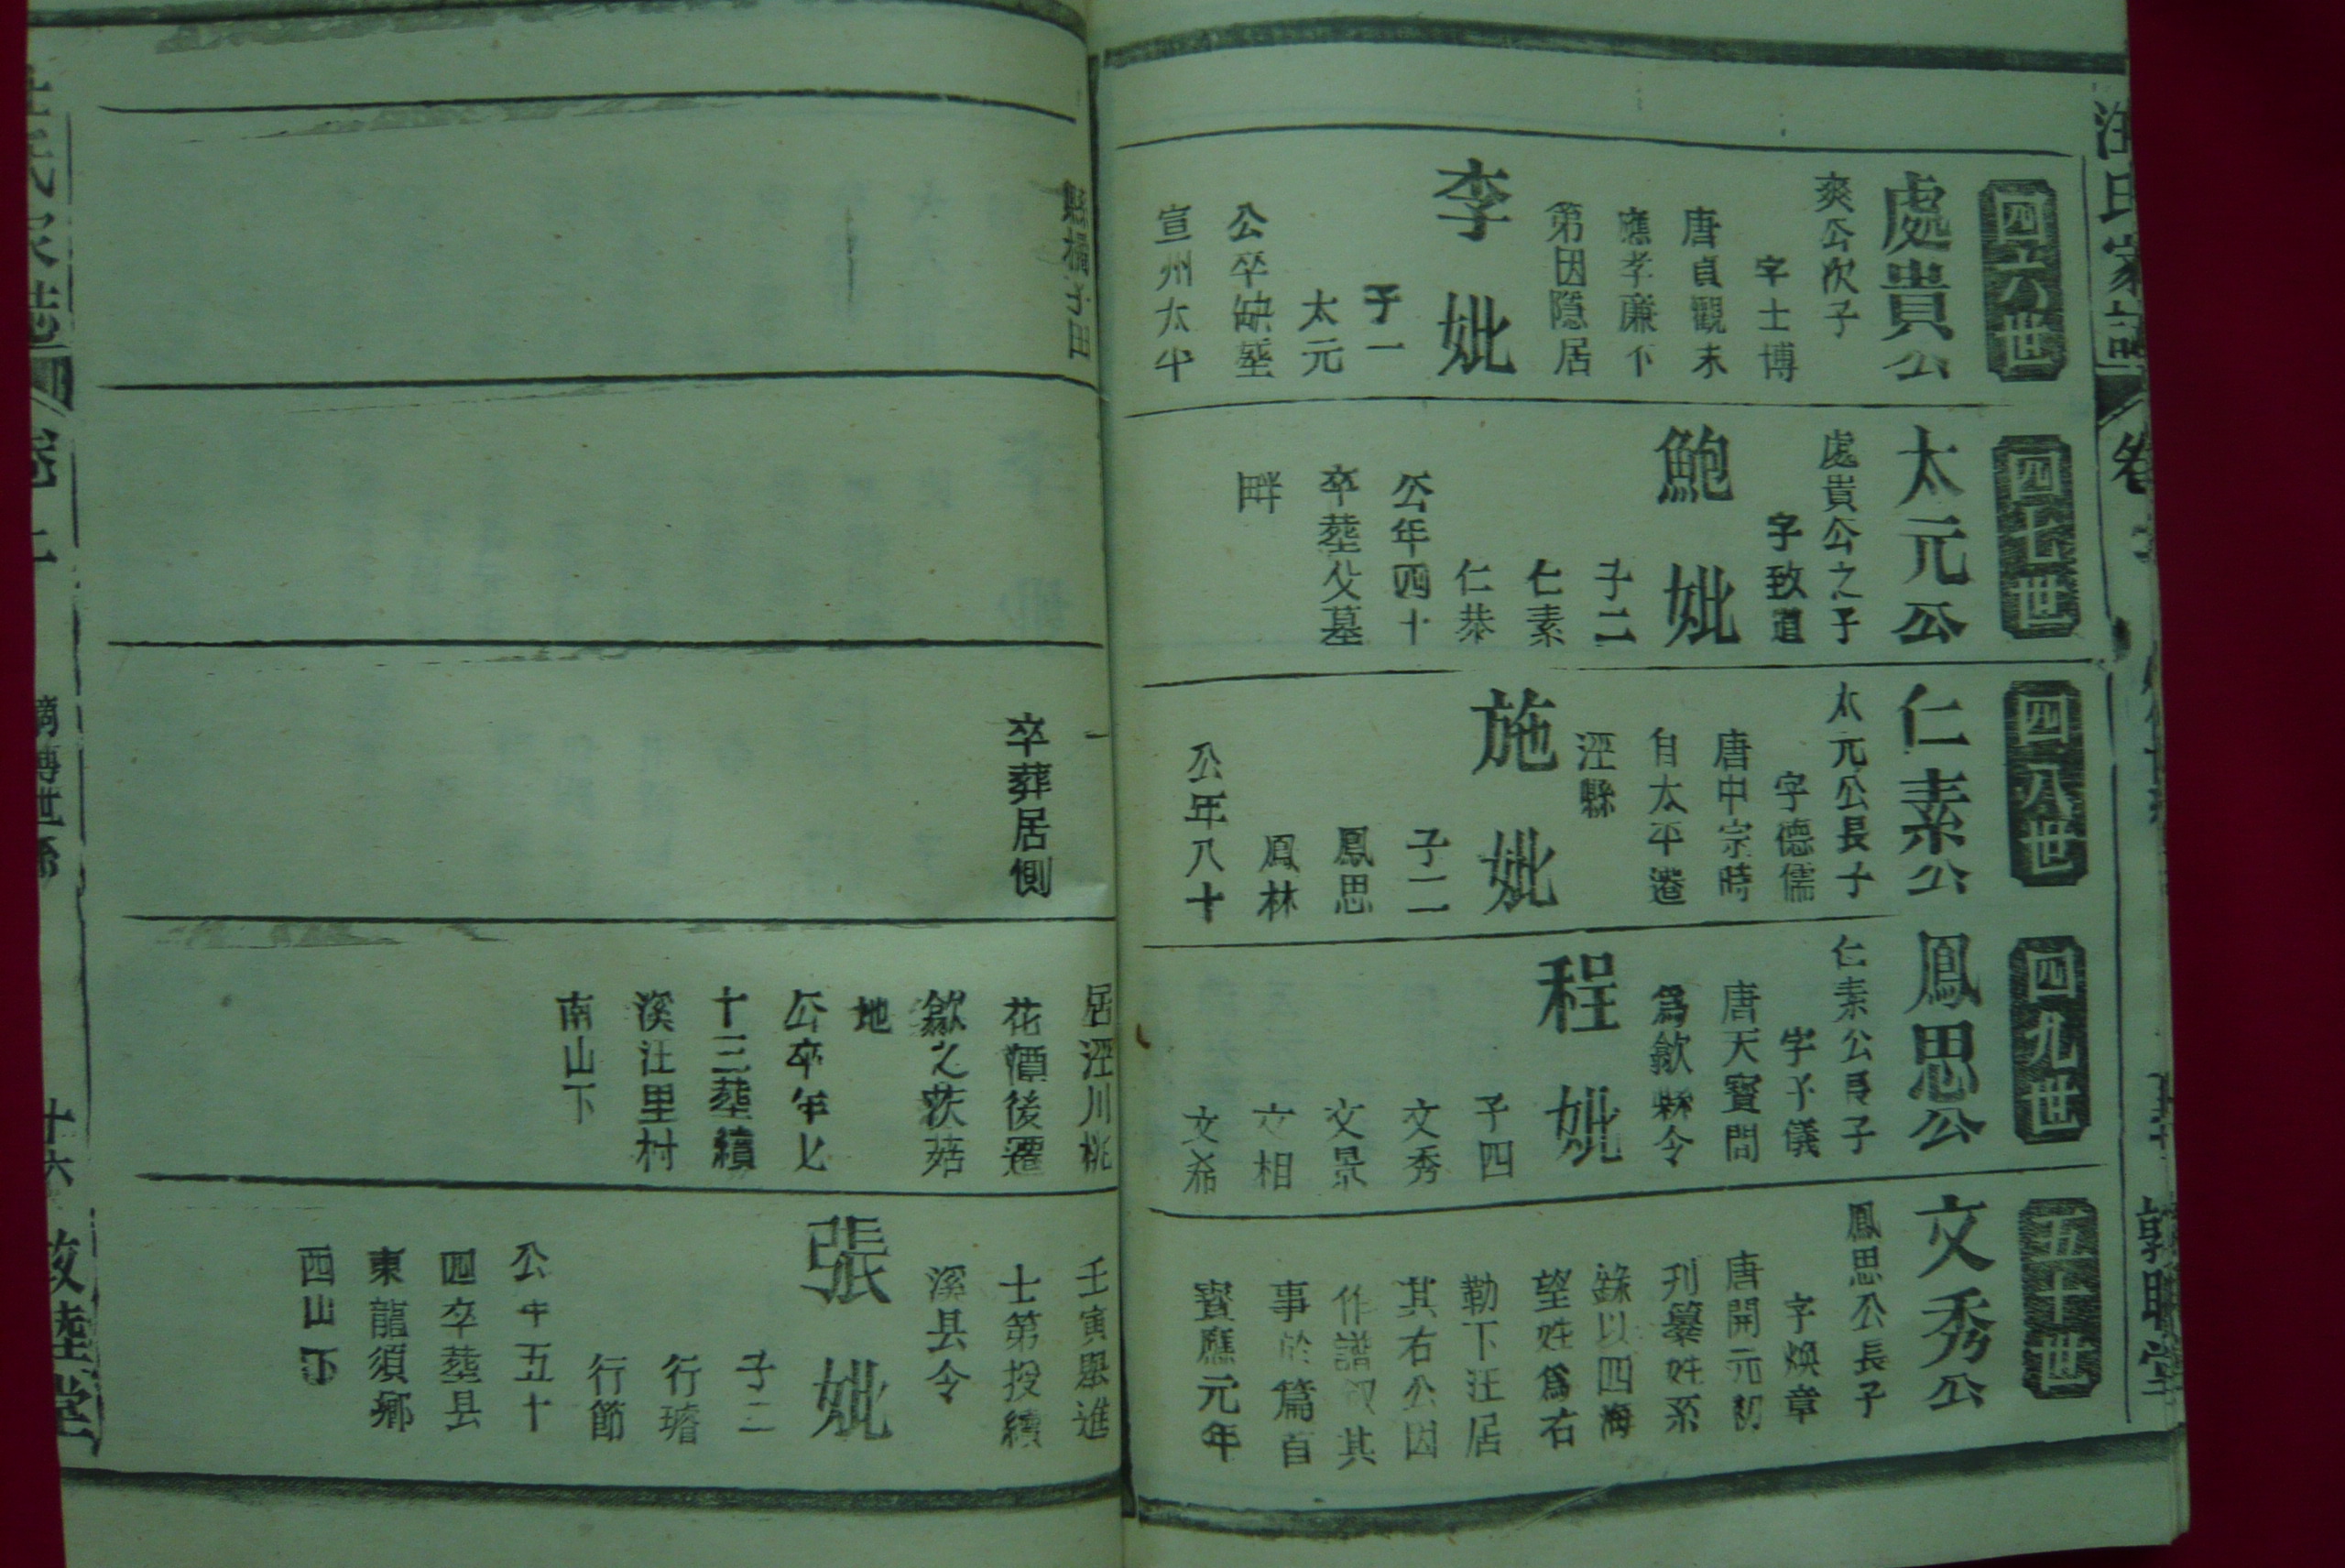 四六世
處貴公
爽公次子
字士博
唐貞觀末
應孝廉不
第因隱居
李妣
子一
太元
公卒缺塟
宣州太平
縣橘子田
四七世
太元公
處貴公之子
字致道
鮑妣
子二
仁素
仁恭
公年四十
卒塟父墓
畔
四八世
仁素公
太元公長子
字德儒
唐中宗時
自太平遷
涇縣
施妣
子二
鳳思
鳳林
公年八十
一
卒葬居側
四九世
鳳思公
仁素公長子
字予儀
唐天寶間
為歙縣令
程妣
子四
文秀
文景
文相
文希
居涇川桃
花潭後遷
歙之茨菇
地
公卒年七
十三塟績
溪汪里村
南山下
五十世
文秀公
鳳思公長子
字煥章
唐開元初
刋纂姓系
錄以四海
望姓爲右
勒下汪居
其右公因
作譜叙其
事於篇首
寳應元年
壬寅舉進
士第授績
溪县令
張妣
子二
行瑃
行節
公年五十
四卒塟县
東龍須鄉
西山下
十六
敦睦堂